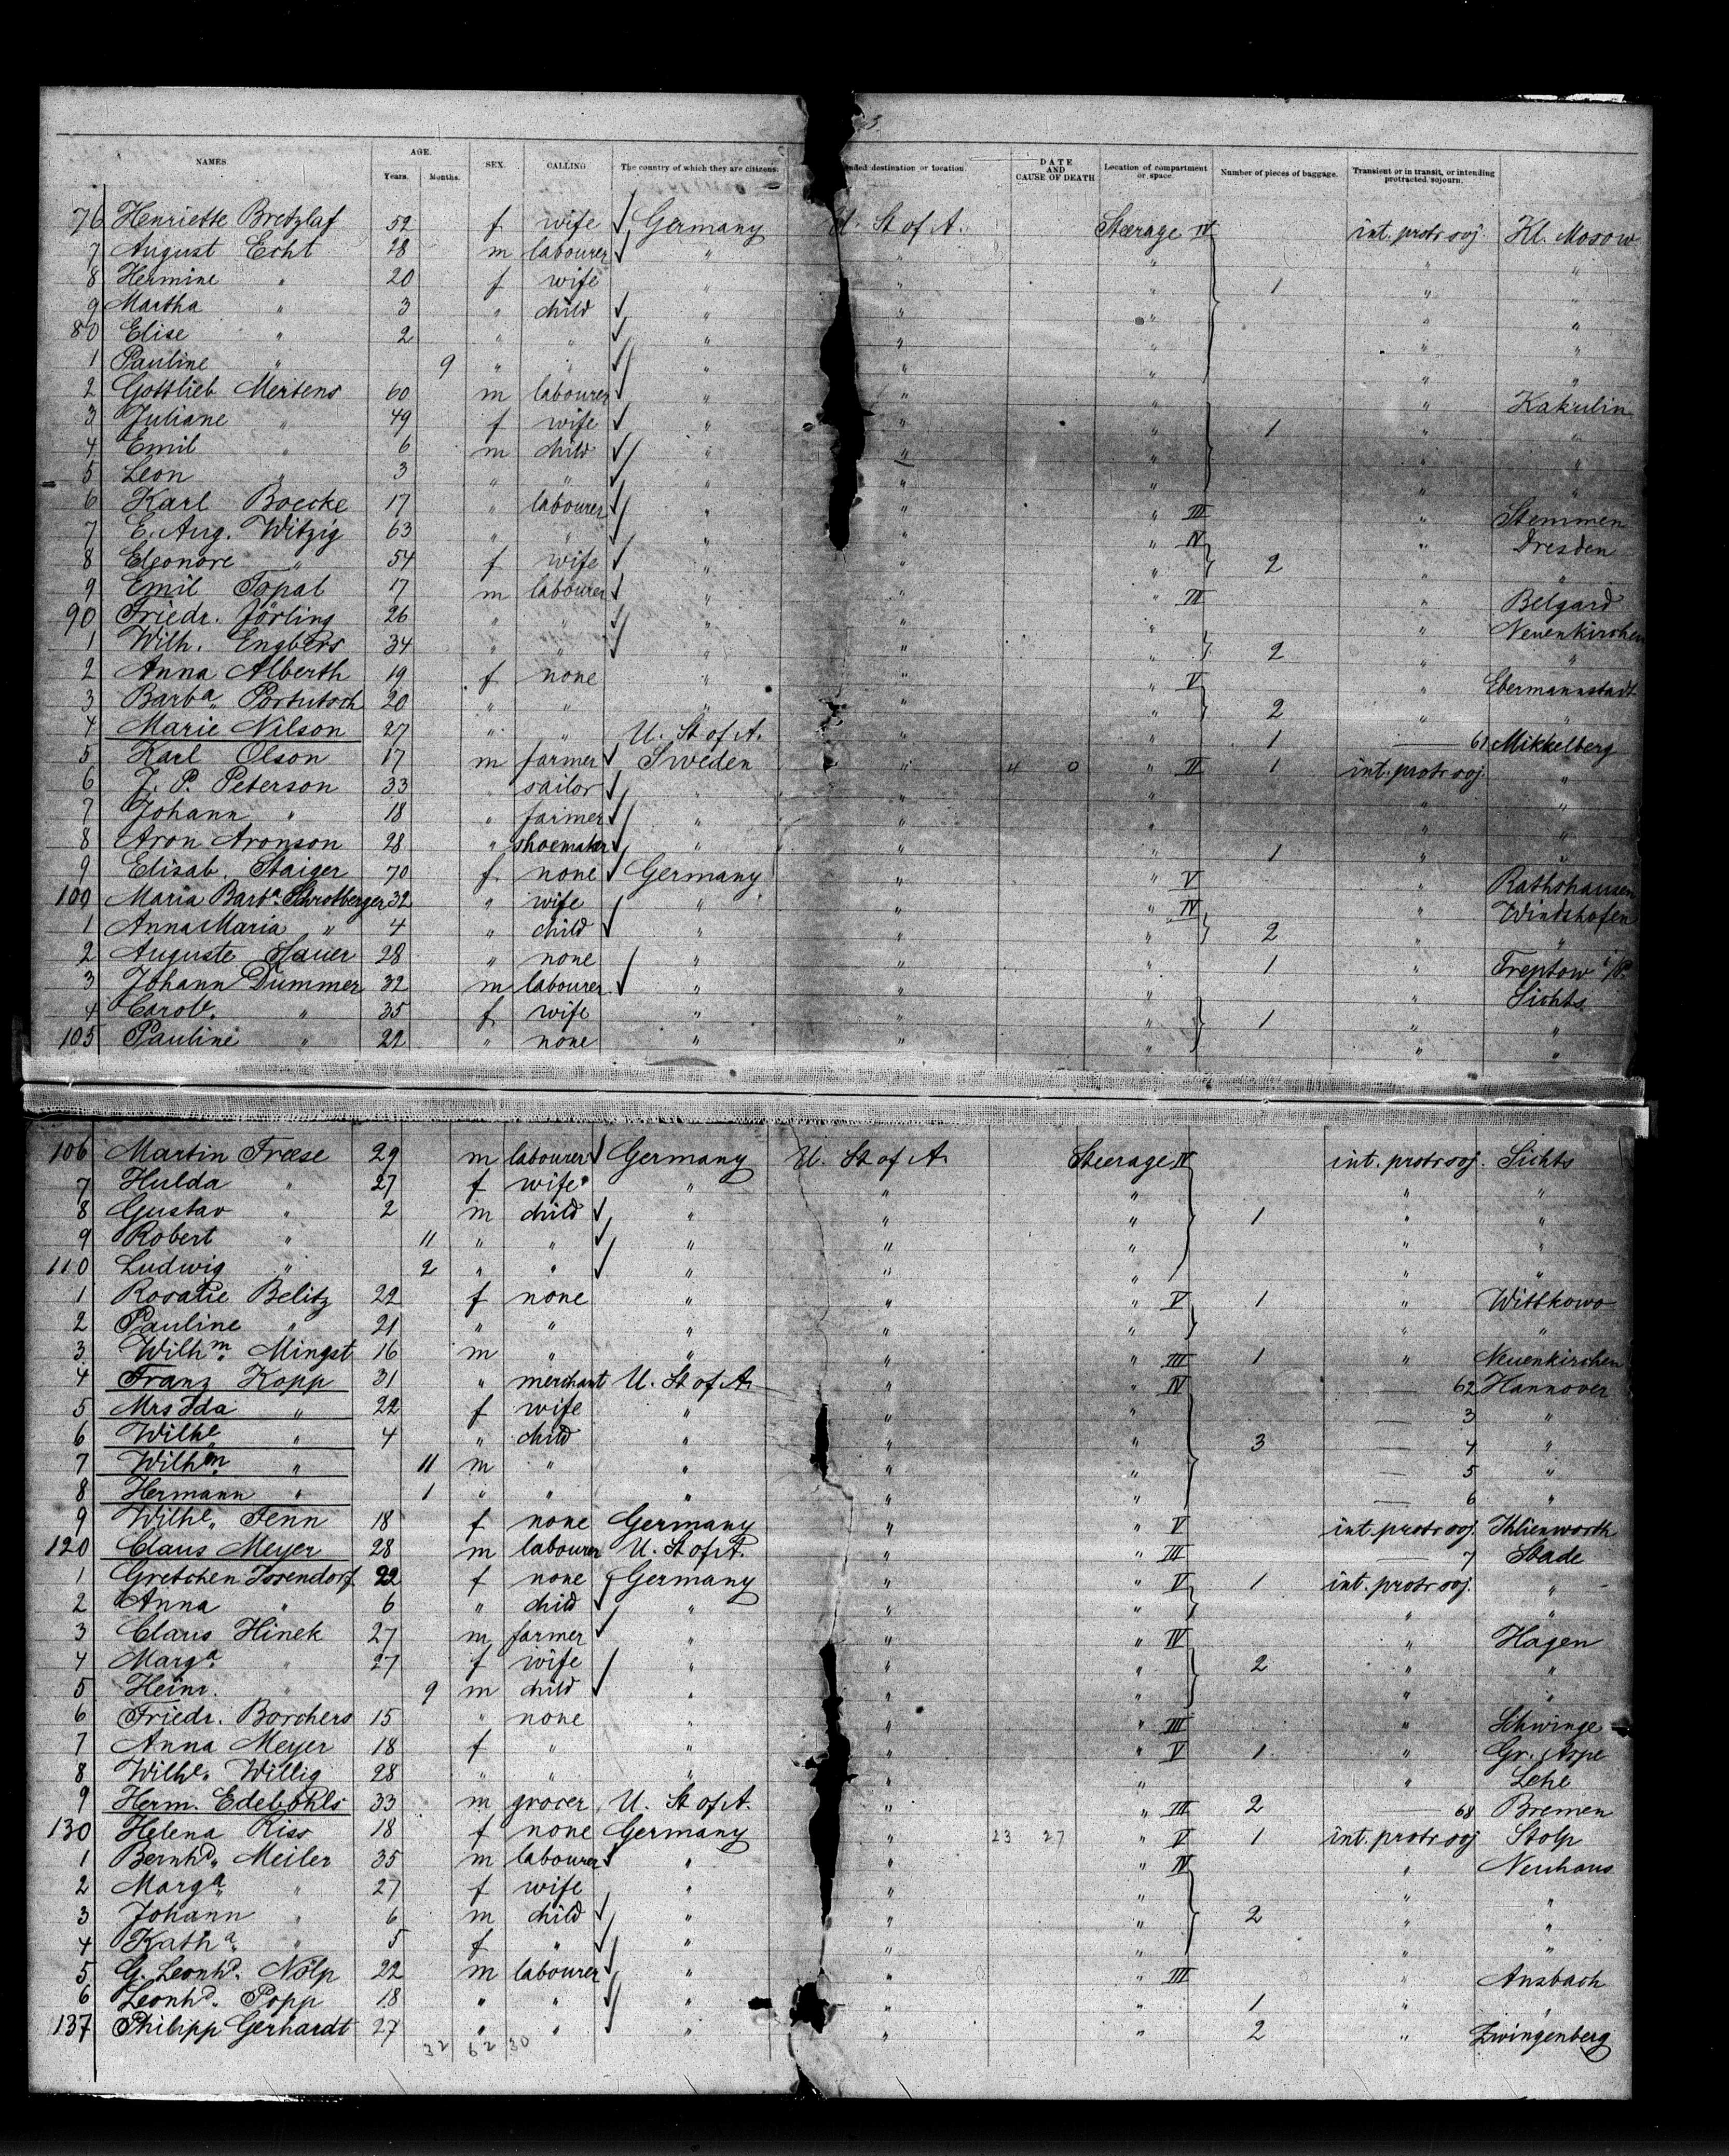 3
NAMES. AGE. SEX. CALLING The country of which they are citizens. nded destination or location. DATE AND CAUSE OF DEATH Location of compartment or space. Number of pieces of baggage. Transient or in transit, or intending protracted sojourn.
Years. Months.
76 Henriette Bretzlaf 52 f wife Germany U. St of A. Steerage IV int. protr soj. Kl. Mosow
7 August Echt 28 m labourer " " " " "
8 Hermine " 20 f wife " " " 1 " "
9 Martha " 3 " child " " " " "
80 Elise " 2 " " " " " " "
1 Pauline " 9 " " " " " " "
2 Gottlieb Mertens 60 m labourer " " " " Kakulin
3 Juliane " 49 f wife " " " 1 " "
4 Emil " 6 m child " " " " "
5 Leon " 3 " " " " " " "
6 Karl Boecke 17 " labourer " " " III " Stemmen
7 E. Aug. Witzig 63 " " " " " IV " Dresden
8 Eleonore " 54 f wife " " " 2 " "
9 Emil Topal 17 m labourer " " " III " Belgard
90 Friedr. Jörling 26 " " " " " " Neuenkirchen
1 Wilh. Engbers 34 " " " " " 2 " "
2 Anna Alberth 19 f none " " " V " Ebermannstadt
3 Barba. 20 " " " " " 2 " "
4 Marie Nilson 27 " " U. St of A. " " 1 — 61 Mikkelberg
5 Karl Olson 17 m farmer Sweden " 4 0 " II 1 int. protr soj. "
6 J. P. Peterson 33 " sailor " " " " "
7 Johann " 18 " farmer " " " " "
8 Aron Aronson 28 " shoemaker " " " 1 " "
9 Elisab. Staiger 70 f. none Germany " " V " Rathshausen
100 Maria Barba. Schrotberger 32 " wife " " " IV " Windshofen
1 Anna Maria " 4 " child " " " 2 " "
2 Auguste Sauer 28 " none " " " 1 " Treptow i/P.
3 Johann Dummer 32 m labourer " " " " Lichts
4 Carole. " 35 f wife " " " 1 " "
105 Pauline " 22 " none " " " " "
106 Martin Freese 29 m labourer Germany U. St of A. Steerage IV int. protr soj. Lichts
7 Hulda " 27 f wife " " " " "
8 Gustav " 2 m child " " " 1 " "
9 Robert " 11 " " " " " " "
110 Ludwig " 2 " " " " " " "
1 Rosalie Belitz 22 f none " " " V 1 " Wittkowo
2 Pauline " 21 " " " " " " "
3 Wilhm. Mingst 16 m " " " " III 1 " Neuenkirchen
4 Franz Kopp 31 " merchant U. St of A. " " IV — 62 Hannover
5 Mrs Ida " 22 f wife " " " — 3 "
6 Wilhe. " 4 " child " " " 3 — 4 "
7 Wilhm. " 11 m " " " " — 5 "
8 Hermann " 1 " " " " " — 6 "
9 Wilhe. Fenn 18 f none Germany " " V int. protr soj. Ihlienworth
120 Claus Meyer 28 m labourer U. St of A. " " III — 7 Stade
1 Gretchen Issendorf 22 f none Germany " " V 1 int. protr soj. "
2 Anna " 6 " child " " " " "
3 Claus Hinck 27 m farmer " " " IV " Hagen
4 Marga. " 27 f wife " " " 2 " "
5 Heinr. " 9 m child " " " " "
6 Friedr. Borchers 15 " none " " " III " Schwinge
7 Anna Meyer 18 f " " " " V 1 " Gr. Aspe
8 Wilhe. Willig 28 " " " " " " Lehe
9 Herm. Edebohls 33 m grocer U. St of A. " " III 2 — 68 Bremen
130 Helena Riss 18 f none Germany " 23 27 " V 1 int. protr soj Stolp
1 Bernhd. Meiler 35 m labourer " " " IV " Neuhaus
2 Marga. " 27 f wife " " " " "
3 Johann " 6 m child " " " 2 " "
4 Katha. " 5 f " " " " " "
5 G. Leonhd. Nölp 22 m labourer " " " III " Ansbach
6 Leonhd. Popp 18 " " " " " 1 " "
137 Philipp Gerhardt 27 " " " " " 2 " Zwingenberg
32 62 30